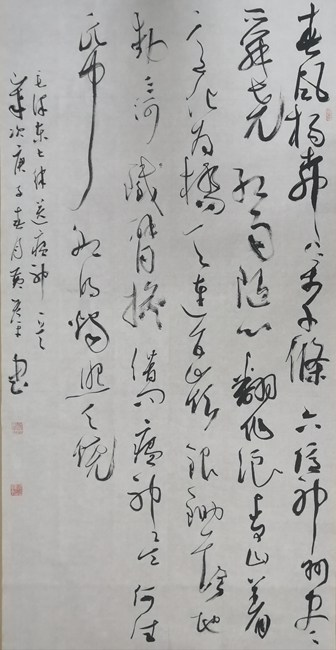 春风杨柳万千條六亿神州尽
舜尧红雨随心翻作浪青山着
意化为橋天連五岭银锄落地
動三河鐵臂摇借问瘟神欲何往
纸船明烛照天烧
毛泽东七律送瘟神
岁次庚子春月 书